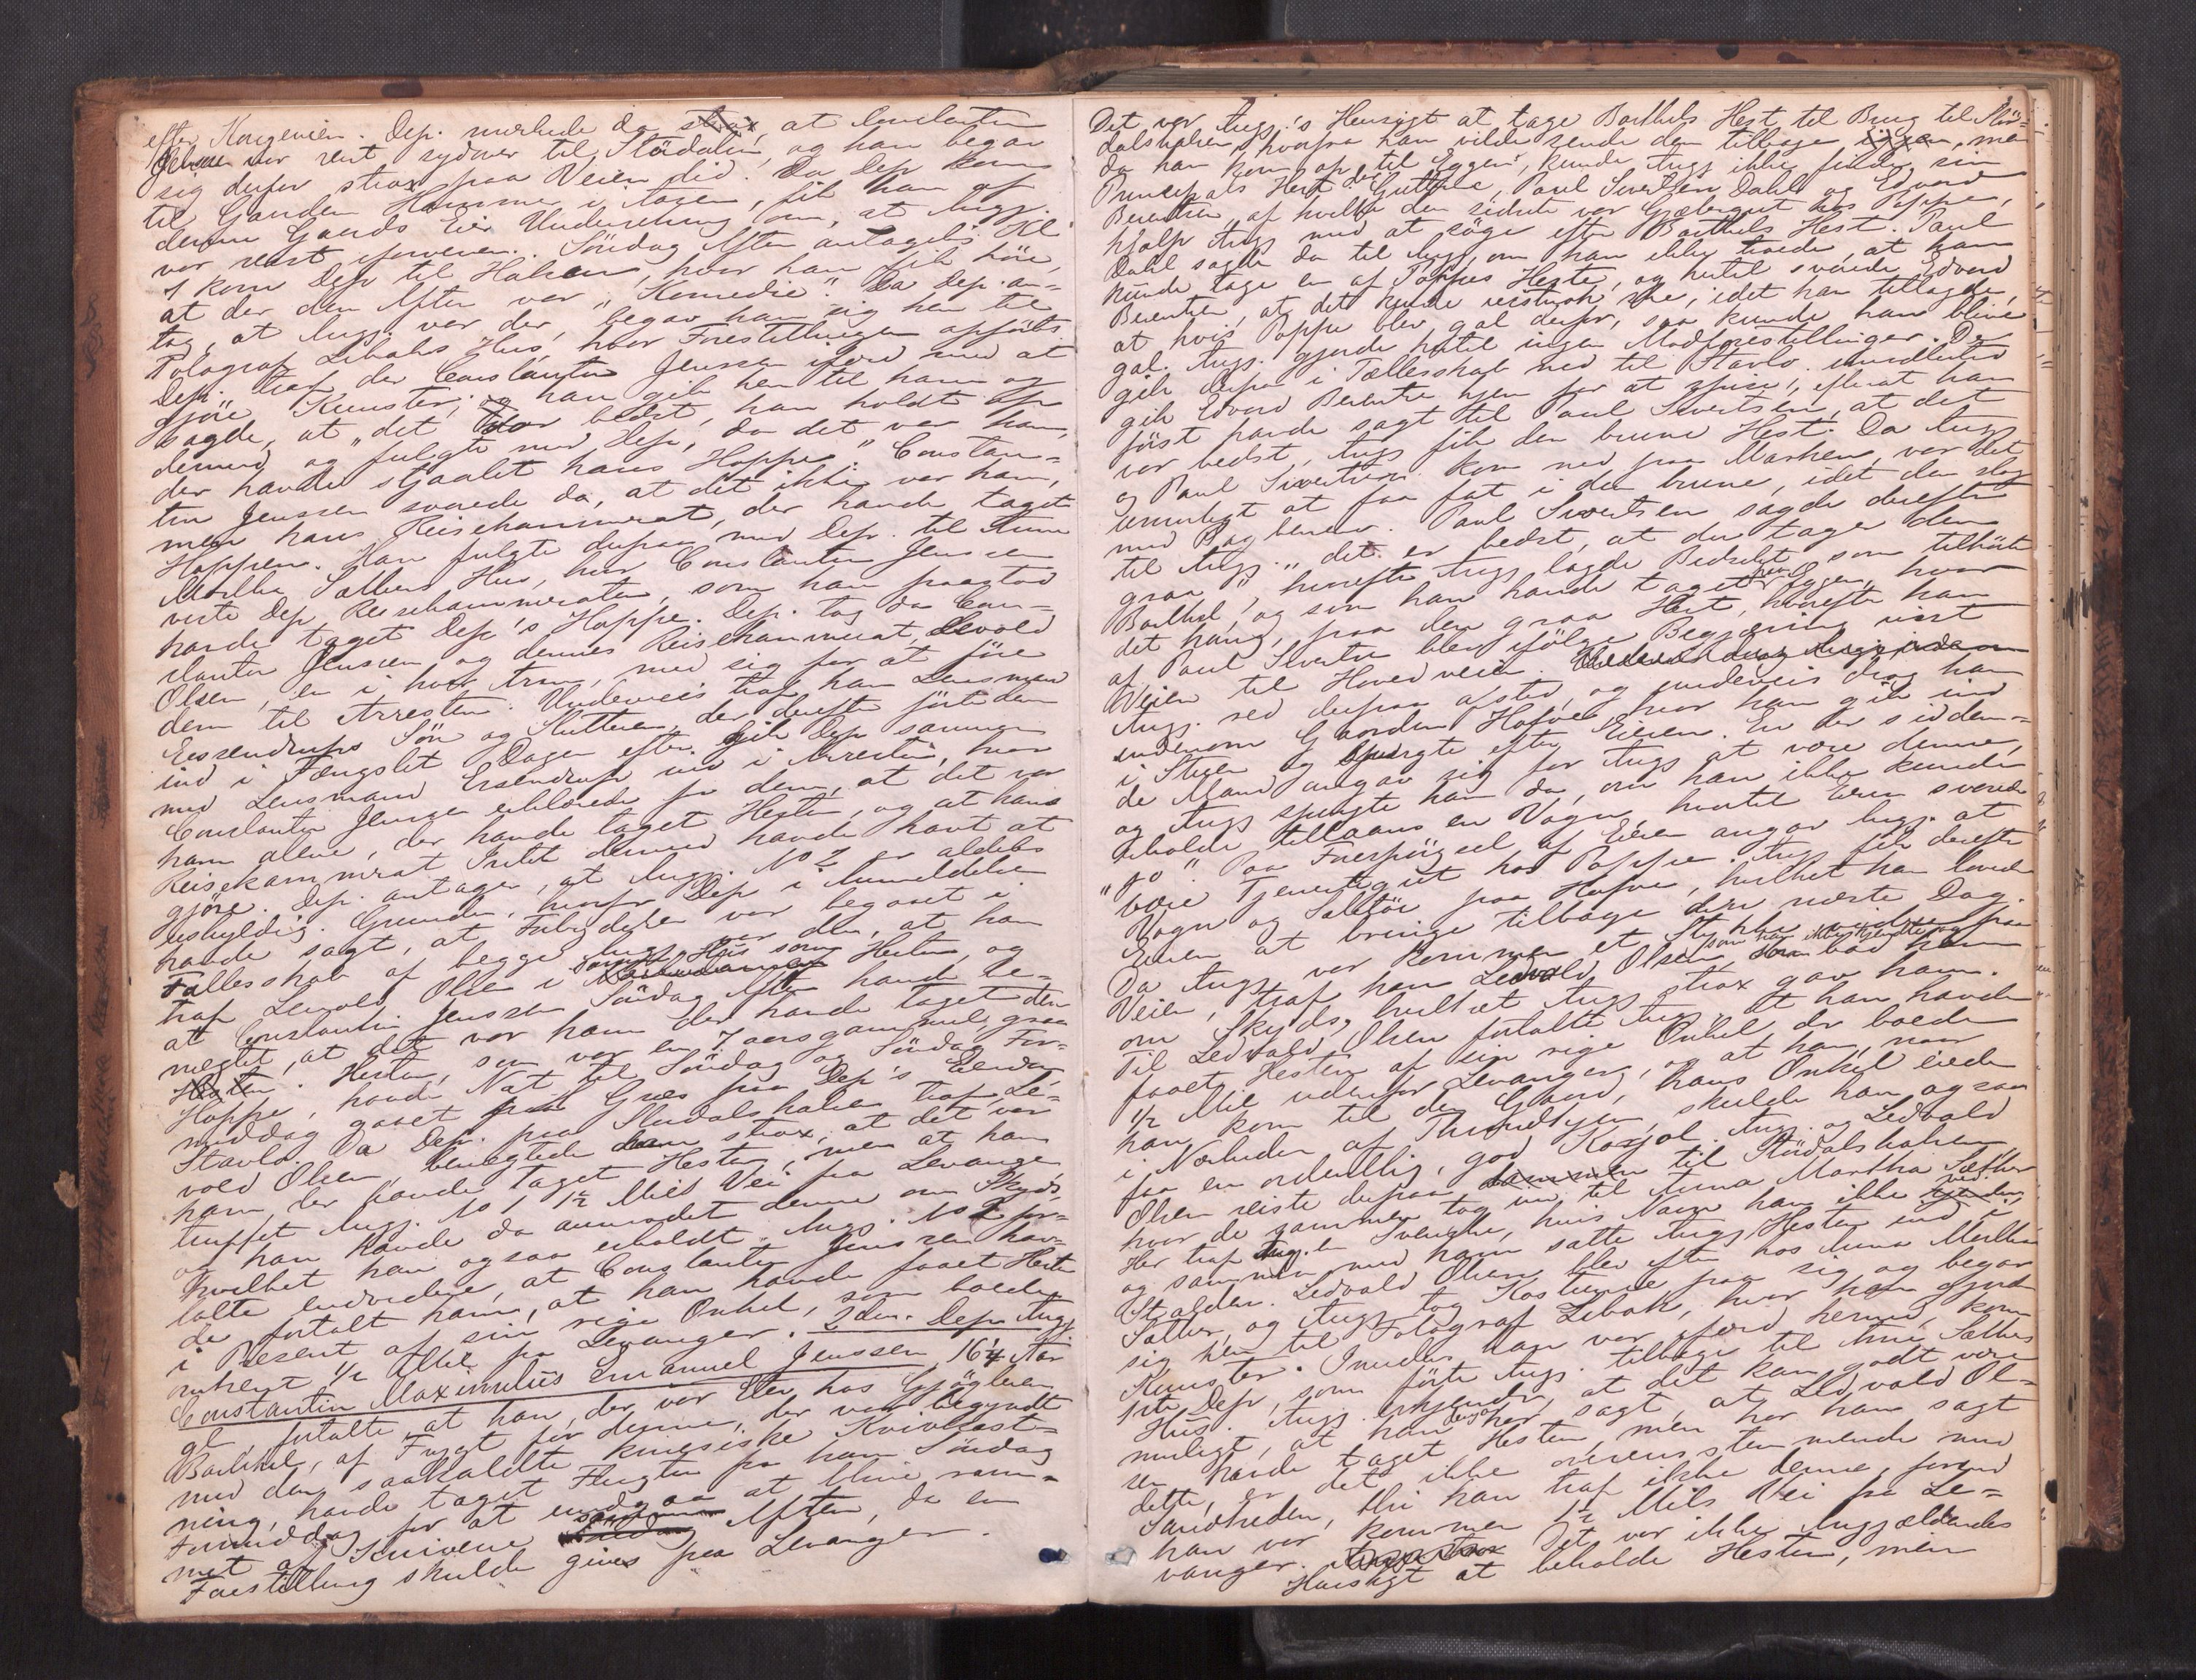 efter Kongeveien. Dep. mærkede da strax, at Constantin
Jensen var reist sydover til Stördalen, og han begav
sig derfor strax paa Veien did. Da Dep kom
til Gaarden Hammer i Aasen, fik han af
denne Gaards Eier Underretning om, at Angj.
var reist iforveien. Söndag Aften antagelig Kl
7 kom Dep til Halsen, hvor han fik höre,
at der den Aften var "Komedie". Da Dep. an-
tog, at Angj. var der, begav han sig hen til
Fotograf Libaks Hus, hvor Forestillingen opförtes
Dep. traf der Constantin Jenssen ifærd med at
gjöre Kunster; og han gik hen til ham og
sagde, at "det var bedst, han holdt op
dermed og fulgte med Dep, da det var ham,
der havde stjaalet hans Hoppe." Constan-
tin Jenssen svarede da, at det ikke var ham,
men hans Reisekammerat, der havde taget
Hoppen. Han fulgte derpaa med Dep. til Anna
Martha Sæthers Hus, hvor Constantin Jenssen
viste Dep. Reisekammeraten, som han paastod
havde taget Dep's Hoppe. Dep. tog da Con-
stantin Jenssen og dennes Reisekammerat, Ledvold
Olsen, en i hver Arm, med sig for at före
dem til Arresten. Underveis traf han Lensmand
Essendrops Sön og Slutteren, der derefter förte dem
ind i Fængslet. Dagen efter gik Dep sammen
med Lensmand Essendrop ind i Arresten, hvor
Constantin Jensen erklærede for dem, at det var
ham alene, der havde taget Hesten, og at hans
Reisekammerat Intet dermed havde havt at
gjöre. Dep. antager, at Angj. No 2 er aldeles
uskyldig. Grunden, hvorfor Dep i Anmeldelsen
havde sagt, at Forbrydelsen var begaaet i
Fællesskab af begge Angj. var den, at han
traf Ledvold Olsen i samme Hus som Hesten, og
at Constantin Jenssen Söndag Aften havde be-
nægtet, at det var ham der havde taget den
Hesten. Hesten, som var en 7 aars gammel, graa
Hoppe, havde Nat til Söndag og Söndag For-
middag gaaet paa Græs paa Dep's Eiendom
Stavlo. Da Dep. paa Stördalshalsen traf Led-
vold Olsen benægtede han strax, at det var
ham, der havde taget Hesten, men at han
truffet Angj. No 1 1½ Mils Vei fra Levanger
og han havde da anmodet denne om Skyds,
hvilket han ogsaa erholdt. Angj. No 2 for-
talte endvidere, at Constantin Jenssen hav-
de fortalt ham, at han havde faaet Hesten
i Present af sin rige Onkel, som boede
omtrent ½ Mil fra Levanger. 2den Dep. Angj
Constantin Maximilius Emanuel Jenssen, 16¼ Aar
gl. fortalte, at han, der var Elev hos Gjögleren
Barthel, af Frygt for denne, der var begyndt
med den saakaldte kinesiske Knivkast-
ning, havde taget Flugten fra ham Söndag
Formiddag for at undgaa at blive ram-
met af Knivene samme Aften, da en
Forestilling skulde gives paa Levanger.
Det var Angj.'s Hensigt at tage Barthels Hest til Brug til Stör-
dalshalsen, hvorfra han vilde sende den tilbage igjen, men
da han kom op til Eggen, kunde Angj ikke finde sin
Principals Hest. Guttene, Paul Sivertsen Dahl og Edvard
Berentsen, af hvilke den sidste var Gjætergut hos Poppe,
hjalp Angj med at söge efter Barthels Hest. Paul
Dahl sagde da til Angj, om han ikke troede, at han
kunde tage en af Poppes Heste, og hertil svarede Edvard
Berentsen, at det kunde visstnok ske, idet han tillagde,
at hvis Poppe blev gal derfor, saa kunde han blive
gal. Angj. gjorde hertil ingen Modforestillinger. De
gik derpaa i Fællesskab ned til Stavlo. imidlertid
gik Edvard Berentsen hjem for at spise, efterat han
först havde sagt til Paul Sivertsen, at det
var bedst, Angj fik den brune Hest. Da Angj
og Paul Sivertsen kom ned paa Marken, var det
umuligt at faa fat i den brune, idet den slog
med Bagbenene. Paul Sivertsen sagde derefter
til Angj. "det er bedst, at du tager den
graa," hvorefter Angj lagde Bidselet, som tilhörte
Barthel, og som han havde taget paa Eggen, hvor
det hang, paa den graa Hest, hvorefter han
af Paul Sivertsen blev ifölge Begjæring vist
Veien til Hovedveien.
Angj. red derpaa afsted, og underveis drog han
indenom Gaarden Hofve, hvor han gik ind
i Stuen og spurgte efter Eieren. En der sidden-
de Mand angav sig for Angj at være denne,
og Angj spurgte han da, om han ikke kunde
erholde tillaans en Vogn, hvortil Eieren svarede
"jo". Paa Forespörgsel af Eieren angav Angj. at
være Tjenestegut hos Poppe. Angj fik derefter
Vogn og Seletöi paa Hofve, hvilket han lovede
Eieren at bringe tilbage den næste Dag.
Da Angj. var kommen et Stykke fra
Veien, traf han Ledvold Olsen, som bad ham
om Skyds, hvilket Angj strax gav ham.
Til Ledvold Olsen fortalte Angj. at han havde
faaet Hesten af sin rige Onkel, der boede
½ Mil udenfor Levanger, og at han, naar
han kom til den Gaard, hans Onkel eiede
i Nærheden af Throndhjem, skulde han ogsaa
faa en ordentlig, god Karjol. Angj. og Ledvold
Olsen reiste derpaa sammen til Stördalshalsen,
hvor de sammen tog ind til Anna Martha Sæther
Her traf Angj. en Svenske, hvis Navn han ikke ved,
og sammen med ham satte Angj Hesten ind i
Stalden. Ledvold Olsen blev efter hos Anna Martha
Sæther, og Angj tog Kosturne paa sig og begav
sig hen til Fotograf Libak, hvor han gjorde
Kunster. Imedens han var ifærd hermed, kom
1ste Dep, som förte Angj. tilbage til Anna Sæthers
Hus. Angj. erkjender, at det kan godt være
muligt, at han der har sagt, at Ledvold Ol-
sen havde taget Hesten, men har han sagt
dette, er det ikke overensstemmende med
Sandheden, thi han traf ikke denne, forend
han var kommen 1½ Mils Vei fra Le-
vanger. Det var ikke Angjældendes
Hensigt at beholde Hesten, men